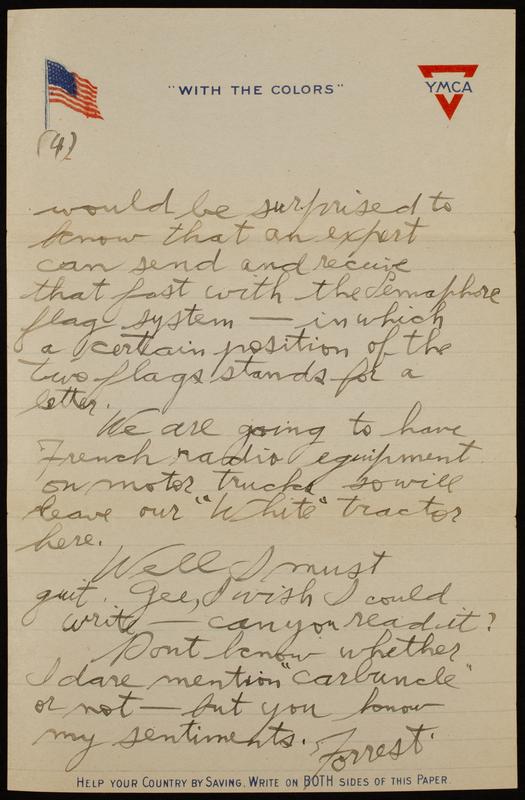 "WITH THE COLORS"
YMCA
(4)
would be surprised to
know that an expert
can send and receive
that fast with the Semaphore
flag system — in which
a certain position of the
two flags stands for a
letter.
We are going to have
French radio equipment
on motor trucks so will
leave our "White" tractor
here.
Well I must
quit. Gee, I wish I could
write — can you read it?
Dont know whether
I dare mention "carbuncle"
or not — but you know
my sentiments. Forrest.
HELP YOUR COUNTRY BY SAVING. WRITE ON BOTH SIDES OF THIS PAPER.